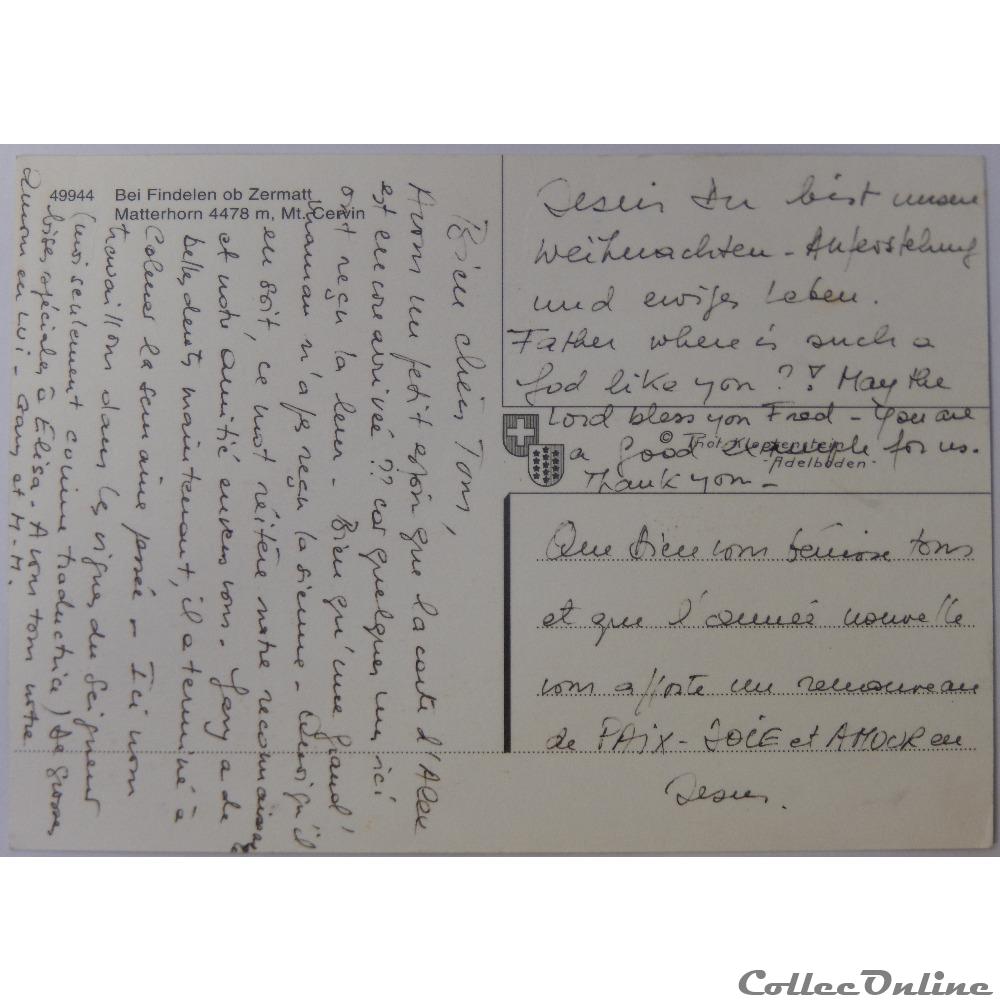 49944 Bei Findelen ob Zermatt
Matterhorn 4478 m, Mt. Cervin
Bien chers Tous,
Avons un petit espoir que la carte d'Alex
est encore arrivée ?? car quelques uns ici
ont reçu la leur - Bien qu'une grand'
maman n'a pas reçu la sienne - Quoiqu'il
en soit, ce mot réitère notre reconnaissance
et notre amitié envers vous. Gary a de
belles dents maintenant, il a terminé à
Colmar la semaine passée - Ici nous
travaillons dans les vignes du Seigneur
(moi seulement comme traductrice) De grosses
bises spéciales à Elisa - A vous tous notre
Amour en Lui - Gary et M-M.
Jesus Du bist unsere
Weihnachten - Auferstehung
und ewiges Leben.
Father where is such a
God like you ?? May the
Lord bless you Fred - You are
a good example for us.
Thank you -
© Thor Klopfenstein
- Adelboden -
Que Dieu vous bénisse tous
et que l'année nouvelle
vous apporte un renouveau
de PAIX - JOIE et AMOUR en
Jesus.
CollecOnline